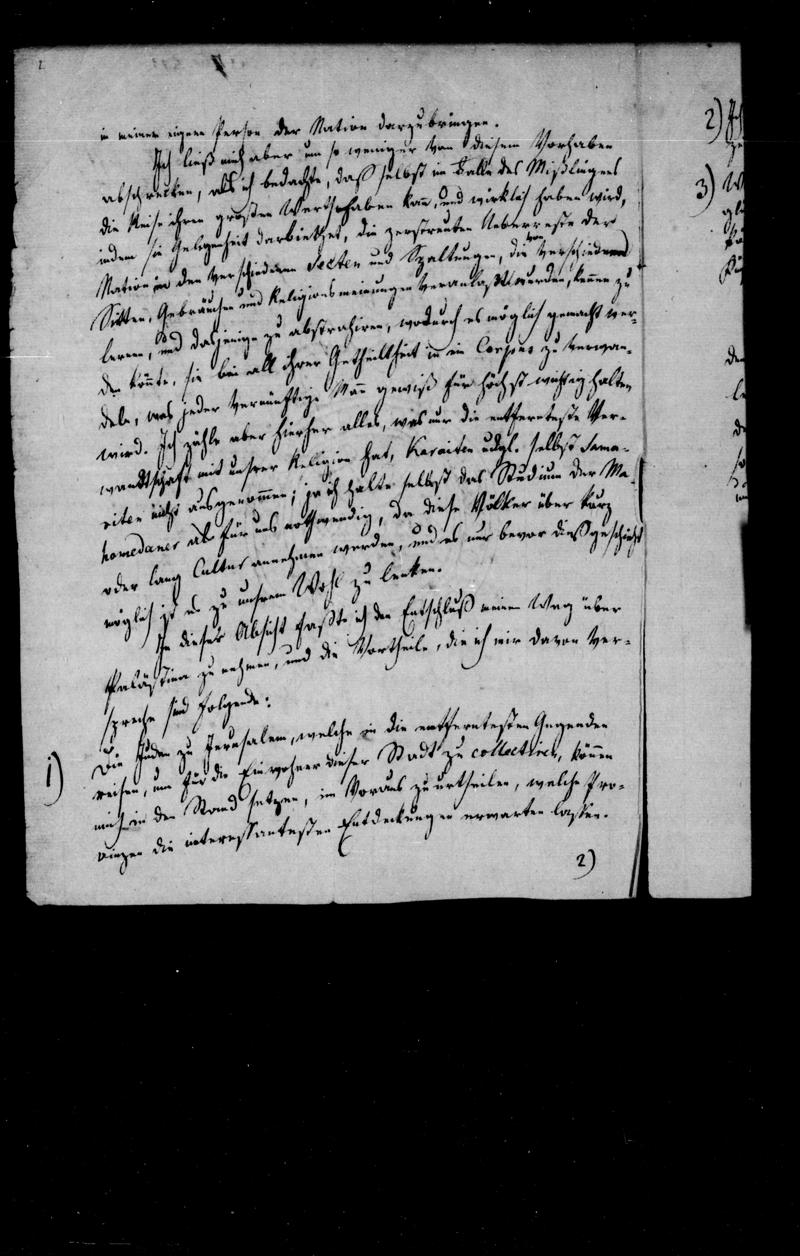 in meiner eignen Person der Nation darzubringen.
Ich ließ mich aber um so weniger von diesem Vorhaben
abschrecken, als ich bedachte, daß selbst im Falle des Mißlingens
die Reise ihren großen Werth haben kann, und wirklich haben wird,
indem sie Gelegenheit darbiethet, die zerstreuten Ueberreste der
Nation in den verschiedenen Secten und Spaltungen, die von verschiedenen
Sitten, Gebräuchen und Religionsmeinungen veranlaßt wurden, kennen zu
lernen, und dasjenige zu abstrahiren, wodurch es möglich gemacht wer-
den könnte, sie bei all ihrer Getheiltheit in ein Corpus zu verwan-
deln, was jeder vernünftige Mann gewiß für höchst wichtig halten
wird. Ich zähle aber hierher alles, was nur die entfernteste Ver-
wandtschaft mit unsrer Religion hat, Karaiten udgl. selbst Sama-
riten nicht ausgenommen; ja ich halte selbst das Studium der Ma-
homedaner als für uns nothwendig, da diese Völker über kurz
oder lang Cultur annehmen werden, und es nur bevor dieß geschieht
möglich ist es zu unsrem Wohl zu lenken.
In dieser Absicht faßte ich den Entschluß meinen Weg über
Palästina zu nehmen, und die Vortheile, die ich mir davon ver-
spreche sind folgende:
1) Die Juden zu Jerusalem, welche in die entferntesten Gegenden
reisen, um für die Einwohner dieser Stadt zu collectiren, können
mich in den Stand setzen, im Voraus zu urtheilen, welche Pro-
vinzen die interessantesten Entdeckungen erwarten lassen.
2)
2)
3)